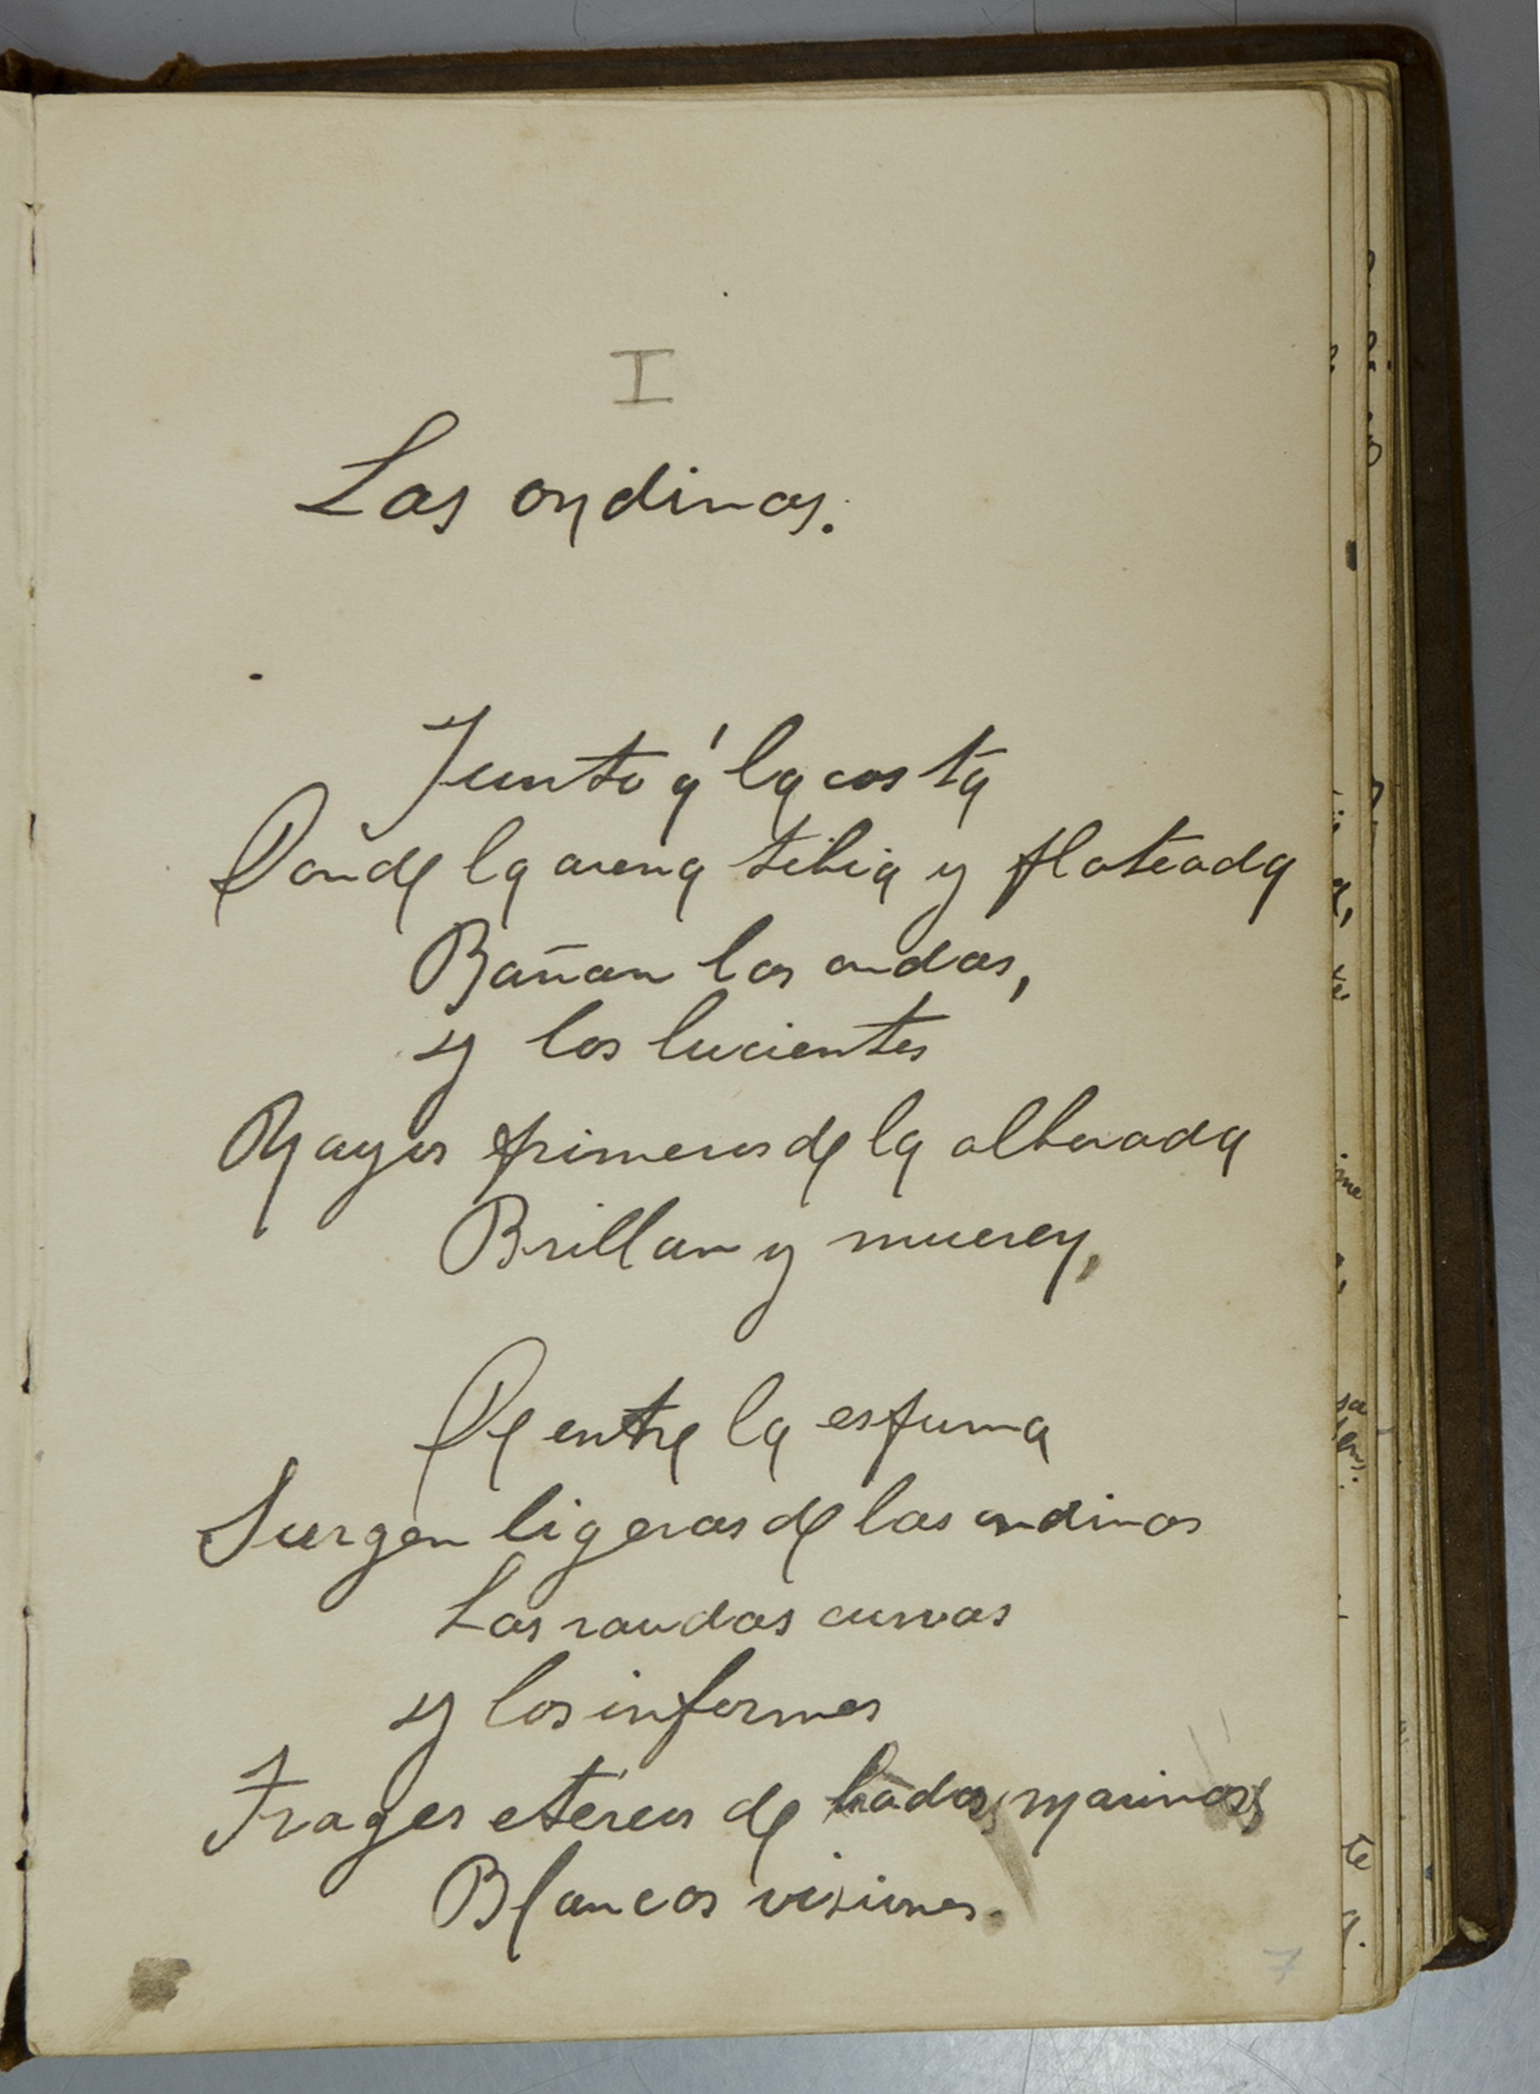 I
Las ondinas.
Junto á la costa
Donde la arena tibia y plateada
Bañan las ondas,
y los lucientes
Rayos primeros de la alborada
Brillan y mueren,
De entre la espuma
Surgen ligeras de las ondinas
Las raudas curvas
y los informes
Trages etéreos de hadas marinas,
Blancas visiones.
7